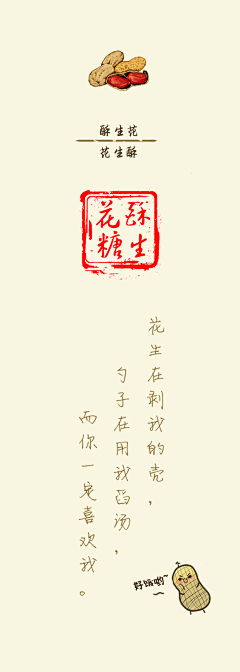 酥生花
花生酥
酥生
花糖
花生在剥我的壳，
勺子在用我舀汤，
而你一定喜欢我。
好饭哟~